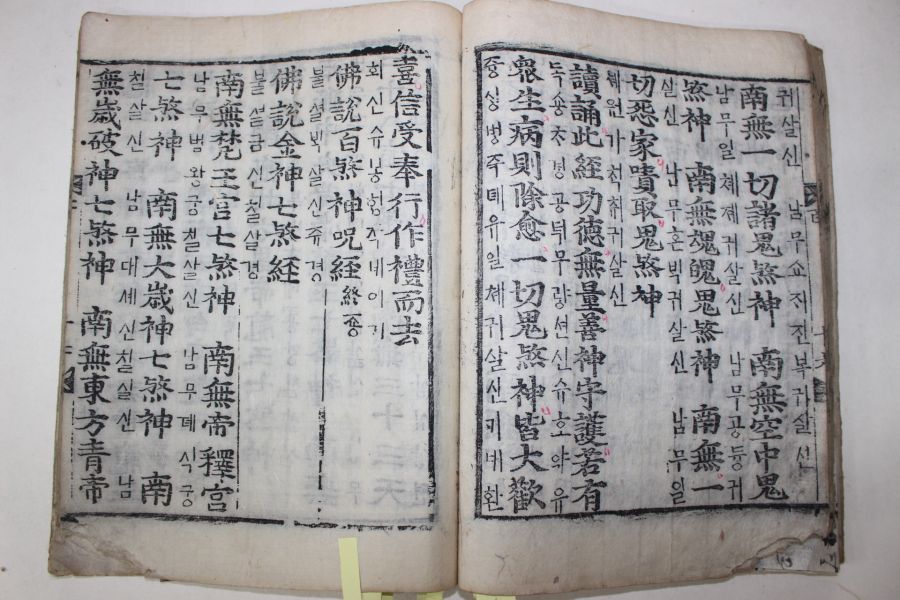 귀살신 남무쇼지진복귀살신
南無一切諸鬼煞神 南無空中鬼
남무일체제귀살신 남무공듕귀
煞神 南無魂魄鬼煞神 南無一
살신 남무혼빅귀살신 남무일
切惡家嘖取鬼煞神
讀誦此經功德無量善神守護若有
독송ᄎᆞ경공덕무량션신슈호약유
衆生病則除愈一切鬼煞神皆大歡
즁ᄉᆡᆼ병즉뎨유일체귀살신ᄀᆡ대환
喜信受奉行作禮而去
희신슈봉ᄒᆡᆼ작녜이거
佛說百煞神呪經 終
불셜ᄇᆡᆨ살신쥬경
佛說金神七煞經
불셜금신칠살경
南無梵王宮七煞神 南無帝釋宮
남무범왕궁칠살신 남무뎨셕궁
七煞神 南無大歲神七煞神 南
칠살신 남무대셰신칠살신 남
無歲破神七煞神 南無東方青帝